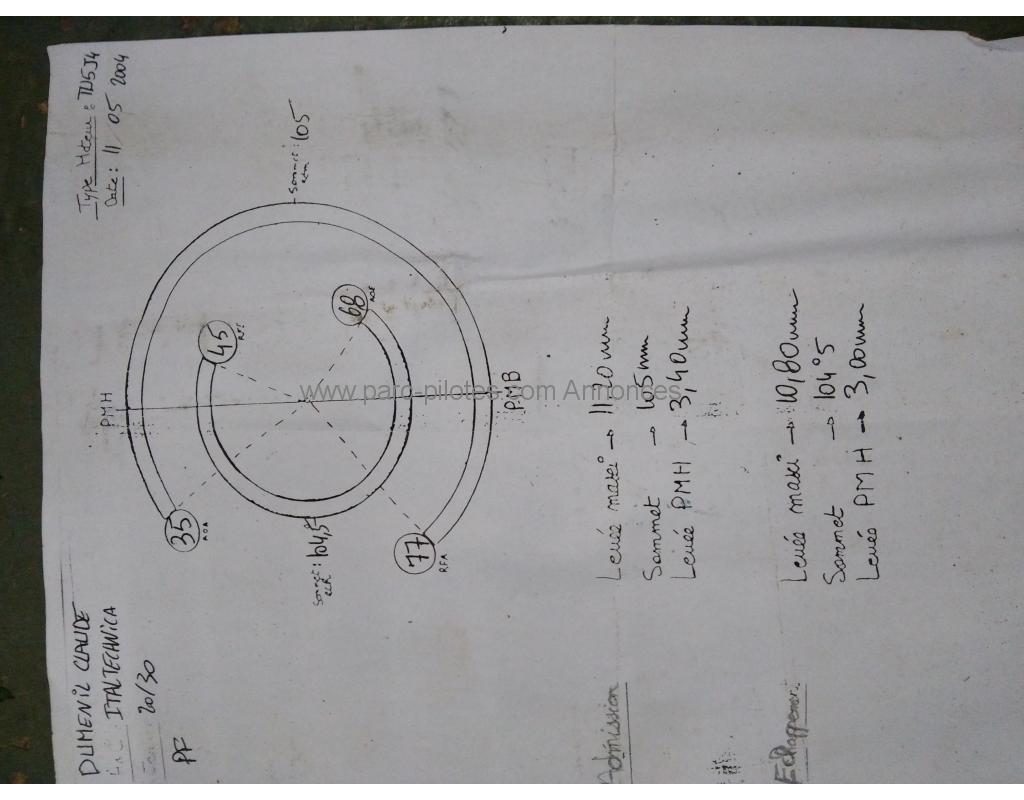 DUMENIL CLAUDE
ITALTECHNICA
20/30
PF
Type Moteur : TU5J4
Date : 11/05 2004
PMH
35
AOA
45
RFE
Sommet : 105
Adm
68
AOE
Sommet : 104,5
ech
77
RFA
PMB
www.parc-pilotes.com Annonces
Admission
Levée maxi → 11,20 mm
Sommet → 105 mm
Levée PMH → 3,40 mm
Echappement
Levée maxi → 10,80 mm
Sommet → 104°5
Levée PMH → 3,00 mm